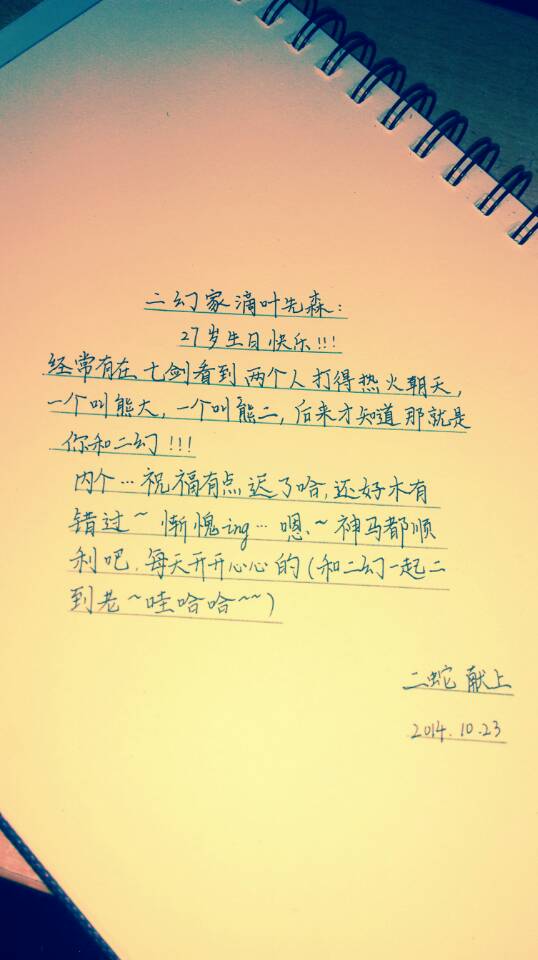 二幻家滴叶先森：
27岁生日快乐!!!
经常有在七剑看到两个人打得热火朝天，
一个叫熊大，一个叫熊二，后来才知道那就是
你和二幻!!!
内个…祝福有点迟了哈，还好木有
错过~惭愧ing…嗯、~神马都顺
利吧，每天开开心心的(和二幻一起二
到老~哇哈哈~~)
二蛇献上
2014.10.23